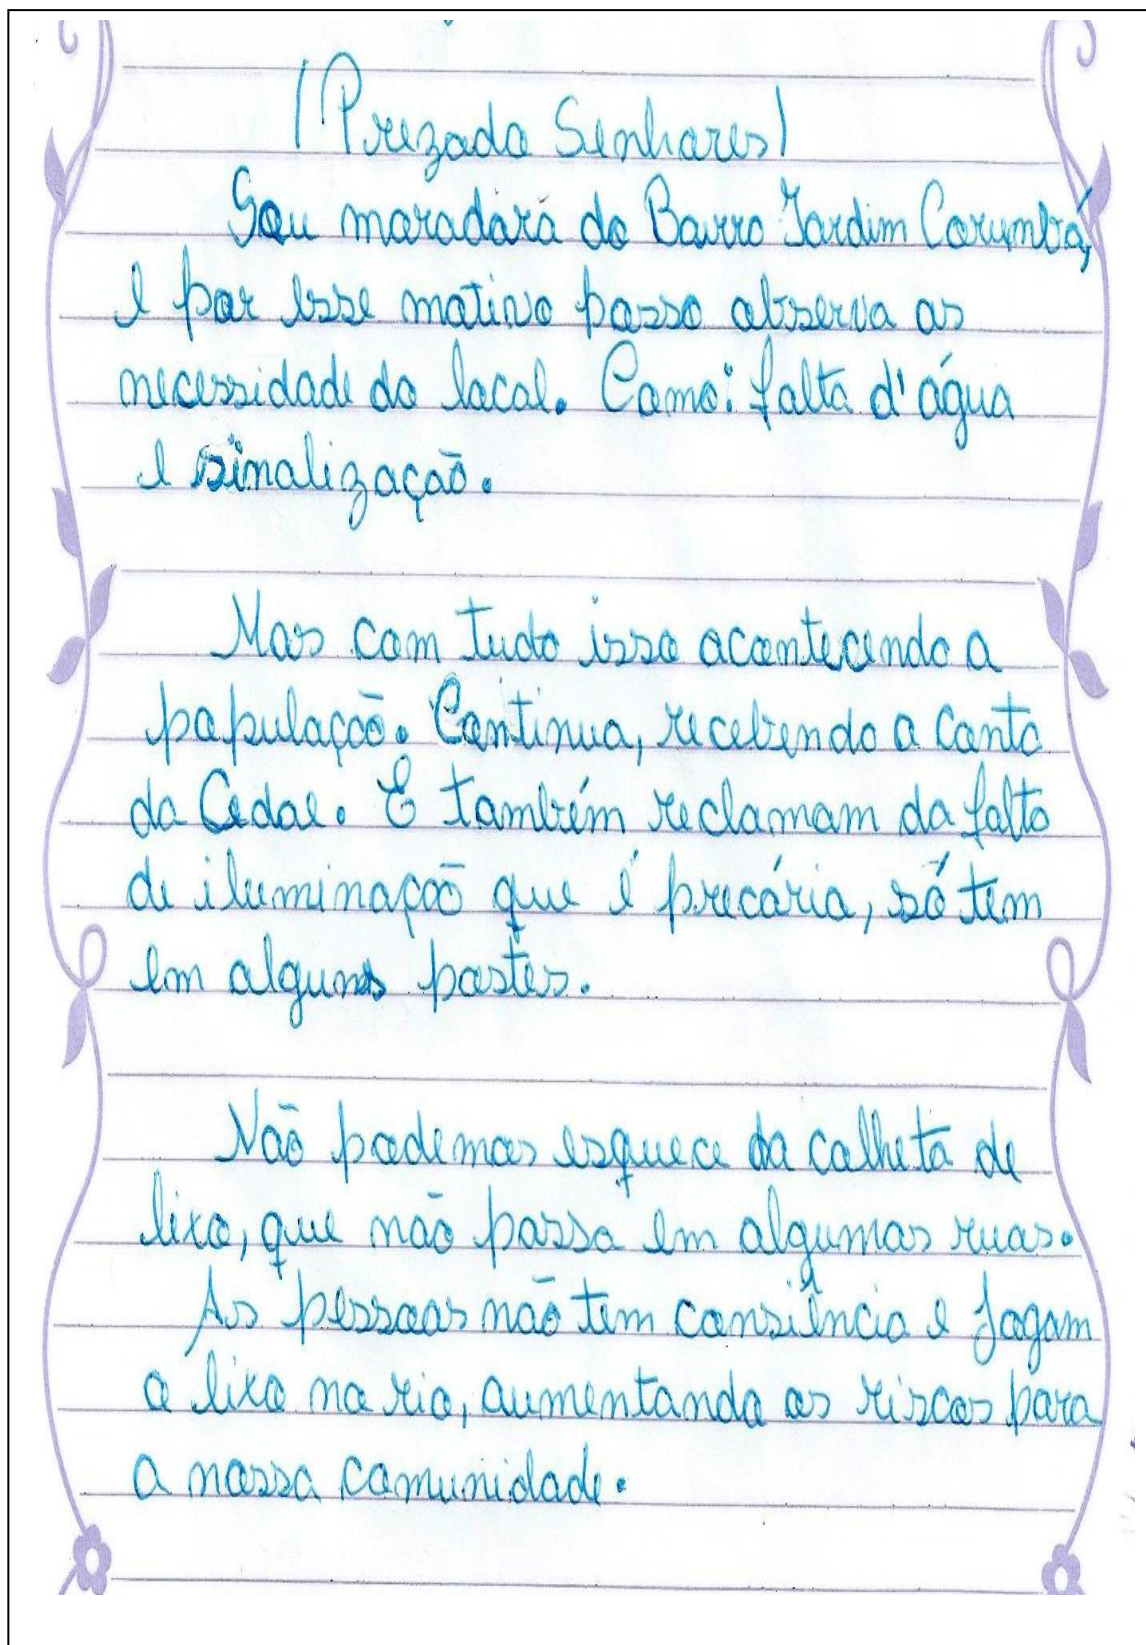 (Prezado Senhores)
Sou moradora do Bairro Jardim Corumbá,
e por esse motivo posso observa as
necessidade do local. Como: falta d'água
e sinalização.
Mas com tudo isso acontecendo a
população. Continua, recebendo a conta
da Cedae. E também reclamam da falta
de iluminação que é precária, só tem
em alguns postes.
Não podemos esquece da colheta de
lixo, que não passa em algumas ruas.
As pessoas não tem consiência e jogam
o lixo no rio, aumentando os riscos para
a nossa comunidade.